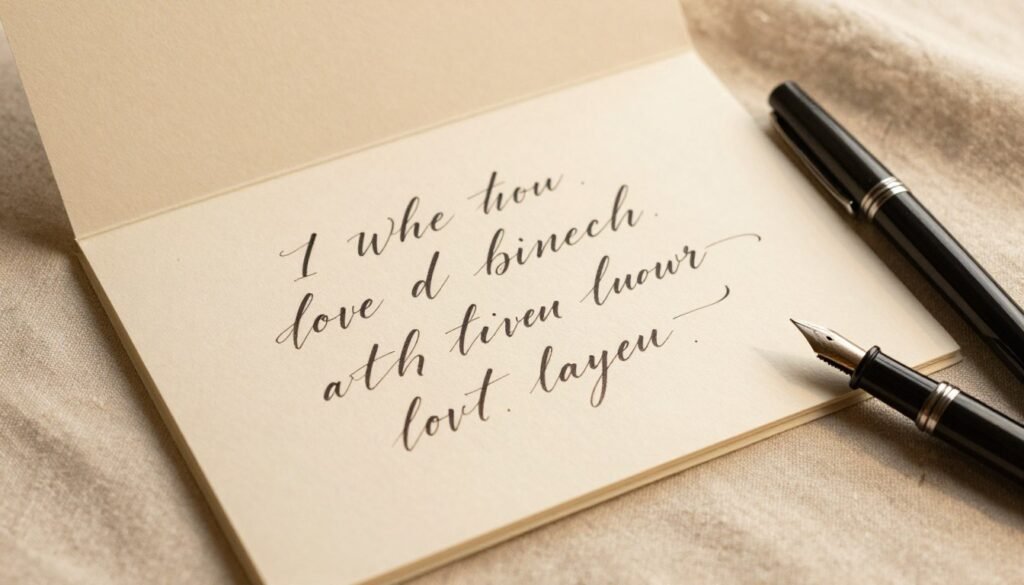 I Whe thou.
love d binech.
ath tiven luowr
lovt. layeu.